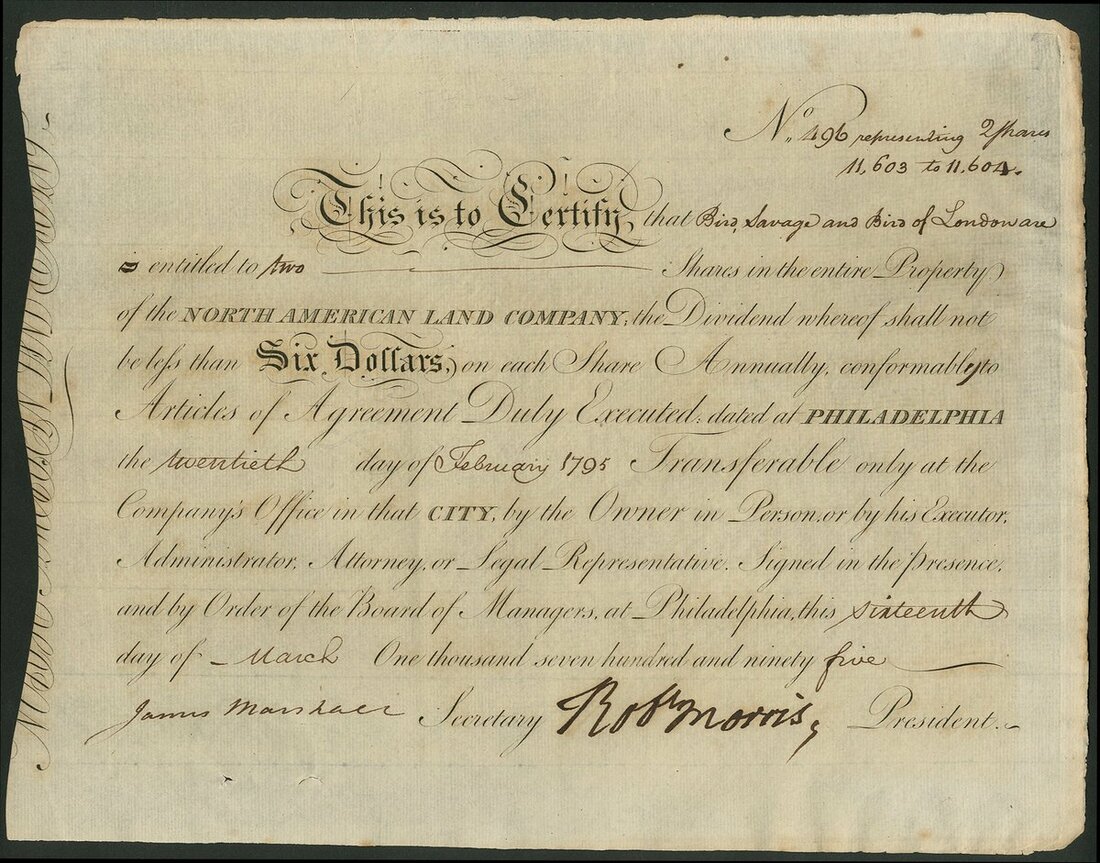 No. 496 representing 2 Shares
11,603 to 11,604.
This is to Certify, that Bird, Savage and Bird of London are
is entitled to two Shares in the entire Property
of the NORTH AMERICAN LAND COMPANY; the Dividend whereof shall not
be less than Six Dollars, on each Share Annually, conformably to
Articles of Agreement Duly Executed; dated at PHILADELPHIA
the twentieth day of February 1795 Transferable only at the
Company's Office in that CITY, by the Owner in Person, or by his Executor,
Administrator, Attorney, or Legal Representative. Signed in the presence,
and by Order of the Board of Managers, at Philadelphia, this sixteenth
day of March One thousand seven hundred and ninety five
James Marshall Secretary Robt Morris, President.